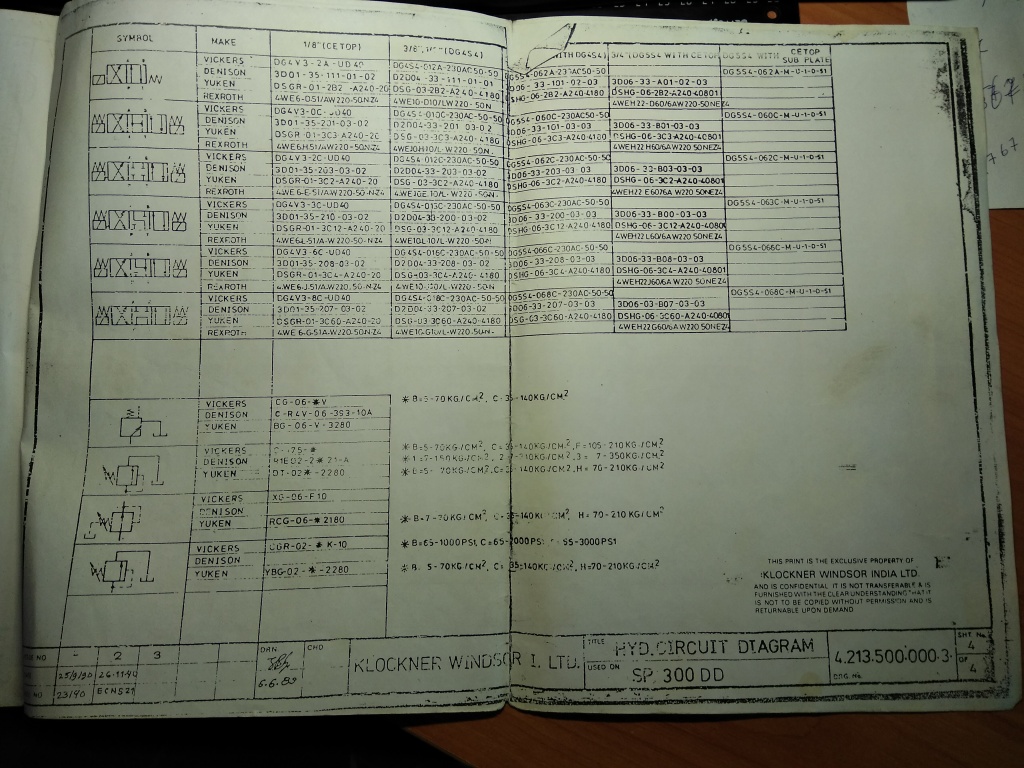 SYMBOL MAKE 1/8"(CETOP) 3/8", (DG4S4) WITH DG4S4) 3/4"(DG5S4 WITH CETOP DG5S4 WITH CETOP
SUB PLATE)
VICKERS DG4V3-2A-UD40 DG4S4-012A-230AC50-50 DG5S4-062A-230AC50-50 DG5S4-062A-M-U-1-D-51
DENISON 3D01-35-111-01-02 D2D04-33-111-01-01 3D06-33-A01-02-03
YUKEN DSGR-01-2B2-A240-20 DSG-03-2B2-A240-4180 DSHG-06-2B2-A240-4180 DSHG-06-2B2-A240-40801
REXROTH 4WE6-D51/AW220-50NZ4 4WE10-D10/LW220-50N 4WEH22-D60/6AW220-50NEZ4
VICKERS DG4V3-0C-UD40 DG4S4-010C-230AC-50-50 DG5S4-060C-230AC50-50 DG5S4-060C-M-U-1-D-51
DENISON 3D01-35-201-03-02 D2D04-33-201-03-02 3D06-33-101-03-03 3D06-33-B01-03-03
YUKEN DSGR-01-3C3-A240-20 DSG-03-3C3-A240-4180 DSHG-06-3C3-A240-4180 DSHG-06-3C3-A240-40801
REXROTH 4WE6.H51/AW220-50-NZ4 4WE10H10/L-W220-50N 4WEH22H60/6AW220-50NEZ4
VICKERS DG4V3-2C-UD40 DG4S4-012C-230AC-50-50 DG5S4-062C-230AC-50-50 DG5S4-062C-M-U-1-D-51
DENISON 3D01-35-203-03-02 D2D04-33-203-03-02 3D06-33-203-03-03 3D06-33-B03-03-03
YUKEN DSGR-01-3C2-A240-20 DSG-03-3C2-A240-4180 DSHG-06-3C2-A240-4180 DSHG-06-3C2-A240-40801
REXROTH 4WE6-E-51/AW220-50-NZ4 4WE10E10/L-W220-50N 4WEH22E60/6AW220-50NEZ4
VICKERS DG4V3-3C-UD40 DG4S4-013C-230AC-50-50 DG5S4-063C-230AC-50-50 DG5S4-063C-M-U-1-D-51
DENISON 3D01-35-210-03-02 D2D04-33-200-03-02 3D06-33-200-03-03 3D06-33-B00-03-03
YUKEN DSGR-01-3C12-A240-20 DSG-03-3C12-A240-4180 DSHG-06-3C12-A240-4180 DSHG-06-3C12-A240-4080
REXROTH 4WE6-L-51/A-W220-50-NZ4 4WE10L10/L-W220-50N 4WEH22L60/6AW220-50NEZ4
VICKERS DG4V3-6C-UD40 DG4S4-016C-230AC-50-50 DG5S4-066C-230AC-50-50 DG5S4-066C-M-U-1-D-51
DENISON 3D01-35-208-03-02 D2D04-33-208-03-02 3D06-33-208-03-03 3D06-33-B08-03-03
YUKEN DSGR-01-3C4-A240-20 DSG-03-3C4-A240-4180 DSHG-06-3C4-A240-4180 DSHG-06-3C4-A240-40801
REXROTH 4WE6-J-51/A-W220-50-NZ4 4WEH22J60/6AW220-50NEZ4
VICKERS DG4V3-8C-UD40 DG4S4-018C-230AC-50-50 DG5S4-068C-230AC-50-50 DG5S4-068C-M-U-1-D-51
DENISON 3D01-35-207-03-02 D2D04-33-207-03-02 3D06-33-207-03-03 3D06-03-B07-03-03
YUKEN DSGR-01-3C60-A240-20 DSG-03-3C60-A240-4180 DSG-03-3C60-A240-4180 DSHG-06-3C60-A240-40801
REXROTH 4WE6-G-51/AW220-50NZ4 4WE10-G10/L-W220-50N 4WEH22G60/6AW220-50NEZ4
VICKERS CG-06-*V * B=5-70KG/CM², C=35-140KG/CM²
DENISON C-R4V-06-3S3-10A
YUKEN BG-06-V-3280
VICKERS * B=5-70KG/CM², C=35-140KG/CM², F=105-210KG/CM²
DENISON
YUKEN DT-02*-2280 C=35-140KG/CM², H=70-210KG/CM²
VICKERS XG-06-F10
DENISON
YUKEN RCG-06-*2180 * B=7-70KG/CM², C=35-140KG/CM², H=70-210KG/CM²
VICKERS CGR-02-*K-10 * B=65-1000PSI, C=65-2000PSI 55-3000PSI
DENISON
YUKEN YBG-02-*-2280 * B=5-70KG/CM², C=35-140KG/CM², H=70-210KG/CM²
THIS PRINT IS THE EXCLUSIVE PROPERTY OF
KLOCKNER WINDSOR INDIA LTD.
AND IS CONFIDENTIAL. IT IS NOT TRANSFERABLE & IS
FURNISHED WITH THE CLEAR UNDERSTANDING THAT IT
IS NOT TO BE COPIED WITHOUT PERMISSION AND IS
RETURNABLE UPON DEMAND
NO - 2 3
25/9/90 26-11-90
NO 23/90 ECN521
DRN CHD
6.6.89
KLOCKNER WINDSOR I. LTD.
TITLE HYD. CIRCUIT DIAGRAM
USED ON SP. 300 DD
4.213.500.000.3
DRG No.
SHT. No.
4
OF
4